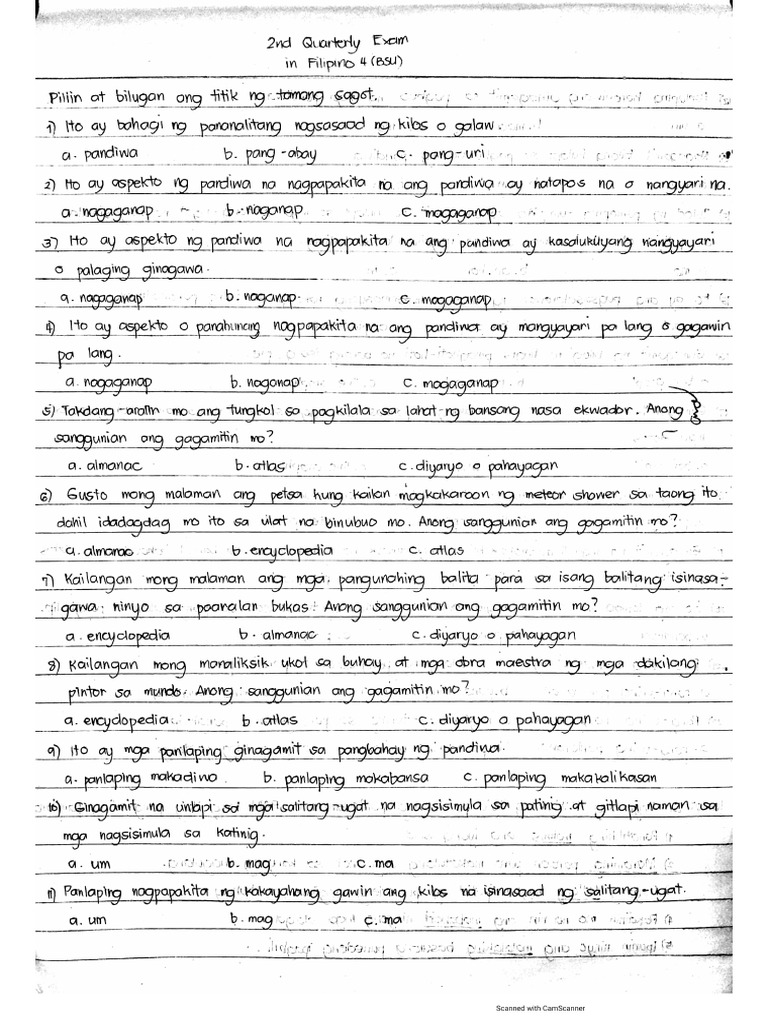 2nd Quarterly Exam
in Filipino 4 (BSU)
Piliin at bilugan ang titik ng tamang sagot.
1) Ito ay bahagi ng pananalitang nagsasaad ng kilos o galaw
a. pandiwa b. pang-abay c. pang-uri
2) Ito ay aspekto ng pandiwa na nagpapakita na ang pandiwa ay natapos na o nangyari na.
a. nagaganap b. naganap c. magaganap
3) Ito ay aspekto ng pandiwa na nagpapakita na ang pandiwa ay kasalukuyang nangyayari
o palaging ginagawa.
a. nagaganap b. naganap c. magaganap
4) Ito ay aspekto o panahunang nagpapakita na ang pandiwa ay mangyayari pa lang o gagawin
pa lang.
a. nagaganap b. naganap c. magaganap
5) Takdang-aralin mo ang tungkol sa pagkilala sa lahat ng bansang nasa ekwador. Anong
sanggunian ang gagamitin mo?
a. almanac b. atlas c. diyaryo o pahayagan
6) Gusto mong malaman ang petsa kung kailan magkakaroon ng meteor shower sa taong ito
dahil idadagdag mo ito sa ulat na binubuo mo. Anong sanggunian ang gagamitin mo?
a. almanac b. encyclopedia c. atlas
7) Kailangan mong malaman ang mga pangunahing balita para sa isang balitang isinasa-
gawa ninyo sa paaralan bukas. Anong sanggunian ang gagamitin mo?
a. encyclopedia b. almanac c. diyaryo o pahayagan
8) Kailangan mong manaliksik ukol sa buhay at mga obra maestra ng mga dakilang
pintor sa mundo. Anong sanggunian ang gagamitin mo?
a. encyclopedia b. atlas c. diyaryo o pahayagan
9) Ito ay mga panlaping ginagamit sa pangbahay ng pandiwa.
a. panlaping makadiwa b. panlaping makabansa c. panlaping makakalikasan
10) Ginagamit na unlapi sa mga salitang-ugat na nagsisimula sa patinig at gitlapi naman sa
mga nagsisimula sa katinig.
a. um b. mag c. ma
11) Panlaping nagpapakita ng kakayahang gawin ang kilos na isinasaad ng salitang-ugat.
a. um b. mag c. ma
Scanned with CamScanner